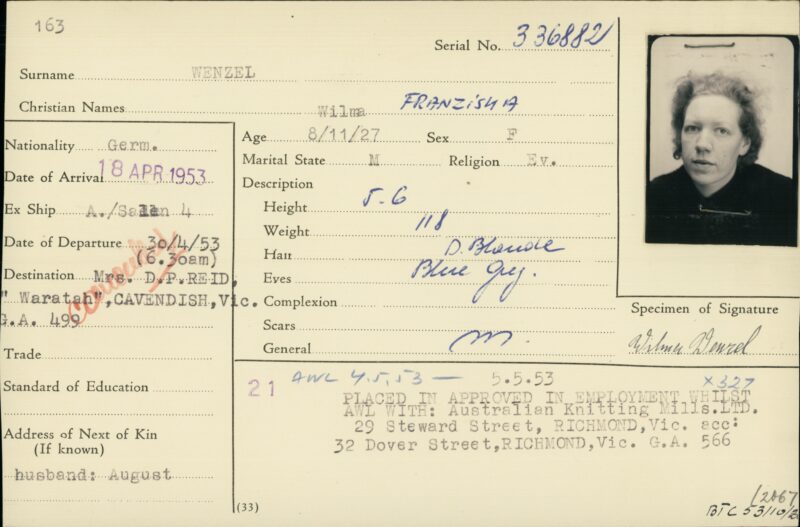 163
Serial No. 336882
Surname WENZEL
Christian Names Wilma FRANZISKA
Nationality Germ.
Date of Arrival 18 APR 1953
Ex Ship A./Salen 4
Date of Departure 30/4/53
(6.30am)
Destination Mrs. D.P.REID,
"Waratah",CAVENDISH,Vic.
G.A. 499
Trade
Standard of Education
Address of Next of Kin
(If known)
husband: August
Age 8/11/27 Sex F
Marital State M Religion Ev.
Description
Height 5-6
Weight 118
Hair D. Blonde
Eyes Blue Grey.
Complexion
Scars
General
Specimen of Signature
Wilma Wenzel
21 AWL 4.5.53 — 5.5.53 X327
PLACED IN APPROVED IN EMPLOYMENT WHILST
AWL WITH: Australian Knitting Mills.LTD.
29 Steward Street, RICHMOND,Vic. acc:
32 Dover Street,RICHMOND,Vic. G.A. 566
(33)